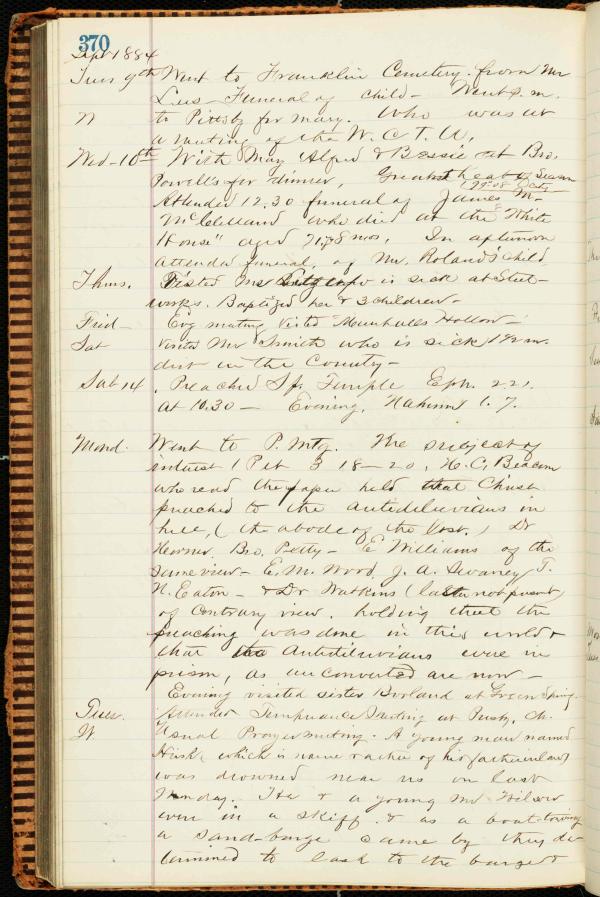 370
Sept 1884
Tues 9th Went to Franklin Cemetery from Mr
Funeral of child - Went p.m.
to Pittsbg for Mary. Who was at
a meeting of the W. C. T. U.
Wed - 10th With May Alfred & Bessie at Bro.
Powell's for dinner, Greatest heat of Season
Attended 12.30 funeral of James M.
McClelland who died at the "White
House" aged 71 8 mos. In afternoon
attended funeral of Mr. Roland's child
Thurs. Visted Mrs who is sick at Steel-
works. Baptized her & 3 children.
Frid - Evg meeting, Visted Hollow -
Sat Visted Mr Smith who is sick 1 1/2 m.
dist in the Country -
Sab 14 . Preached Temple Eph. 2 21.
at 10.30 - Evening, Nahum 1. 7.
Mond. Went to P. Mtg. The subject of
interest 1 Pet 3 18-20. H. C. Beacom
who read the paper held that Christ
preached to the antediluvians in
hell, (the abode of the lost.) Dr
Bro. Petty - E Williams of the
same view - E. M. Wood, J. A. Swaney T.
N. Eaton - & Dr Watkins (latter not present)
of contrary view. holding that the
preaching was done in this world &
that the Antediluvians were in
prison, as unconverted are now -
Evening visited sister Borland at Green Spring -
Tues. Attended Temperance Meeting at Presby. Ch.
W. Usual Prayer meeting. A young man named
Hirsh (which is name rather of his father in law)
was drowned near us on last
Monday. He & a young Mr Wilson
were in a skiff & as a boat towing
a sand-barge came by they de
termined to lash to the barge &